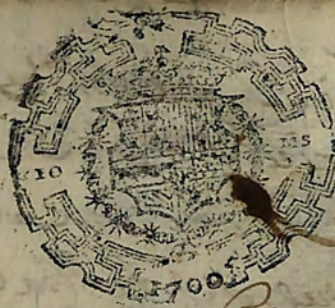 10 MS
1700